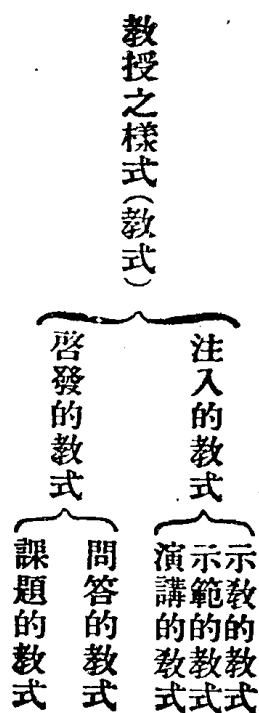 教授之樣式(教式)
注入的教式
示教的教式
示範的教式
演講的教式
啓發的教式
問答的教式
課題的教式